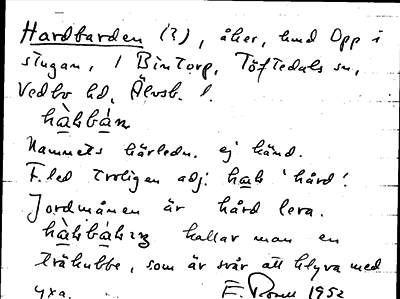 Hardbarden (?), åker, hmd Opp i
stugan, / Bintorp, Töftedals sn,
Vedbo hd, Älvsb. l.
Namnets härledn. ej känd.
F.led troligen adj. hah 'hård'.
Jordmånen är hård lera.
kallar man en
träkubbe, som är svår att klyva med
yxa. 1952